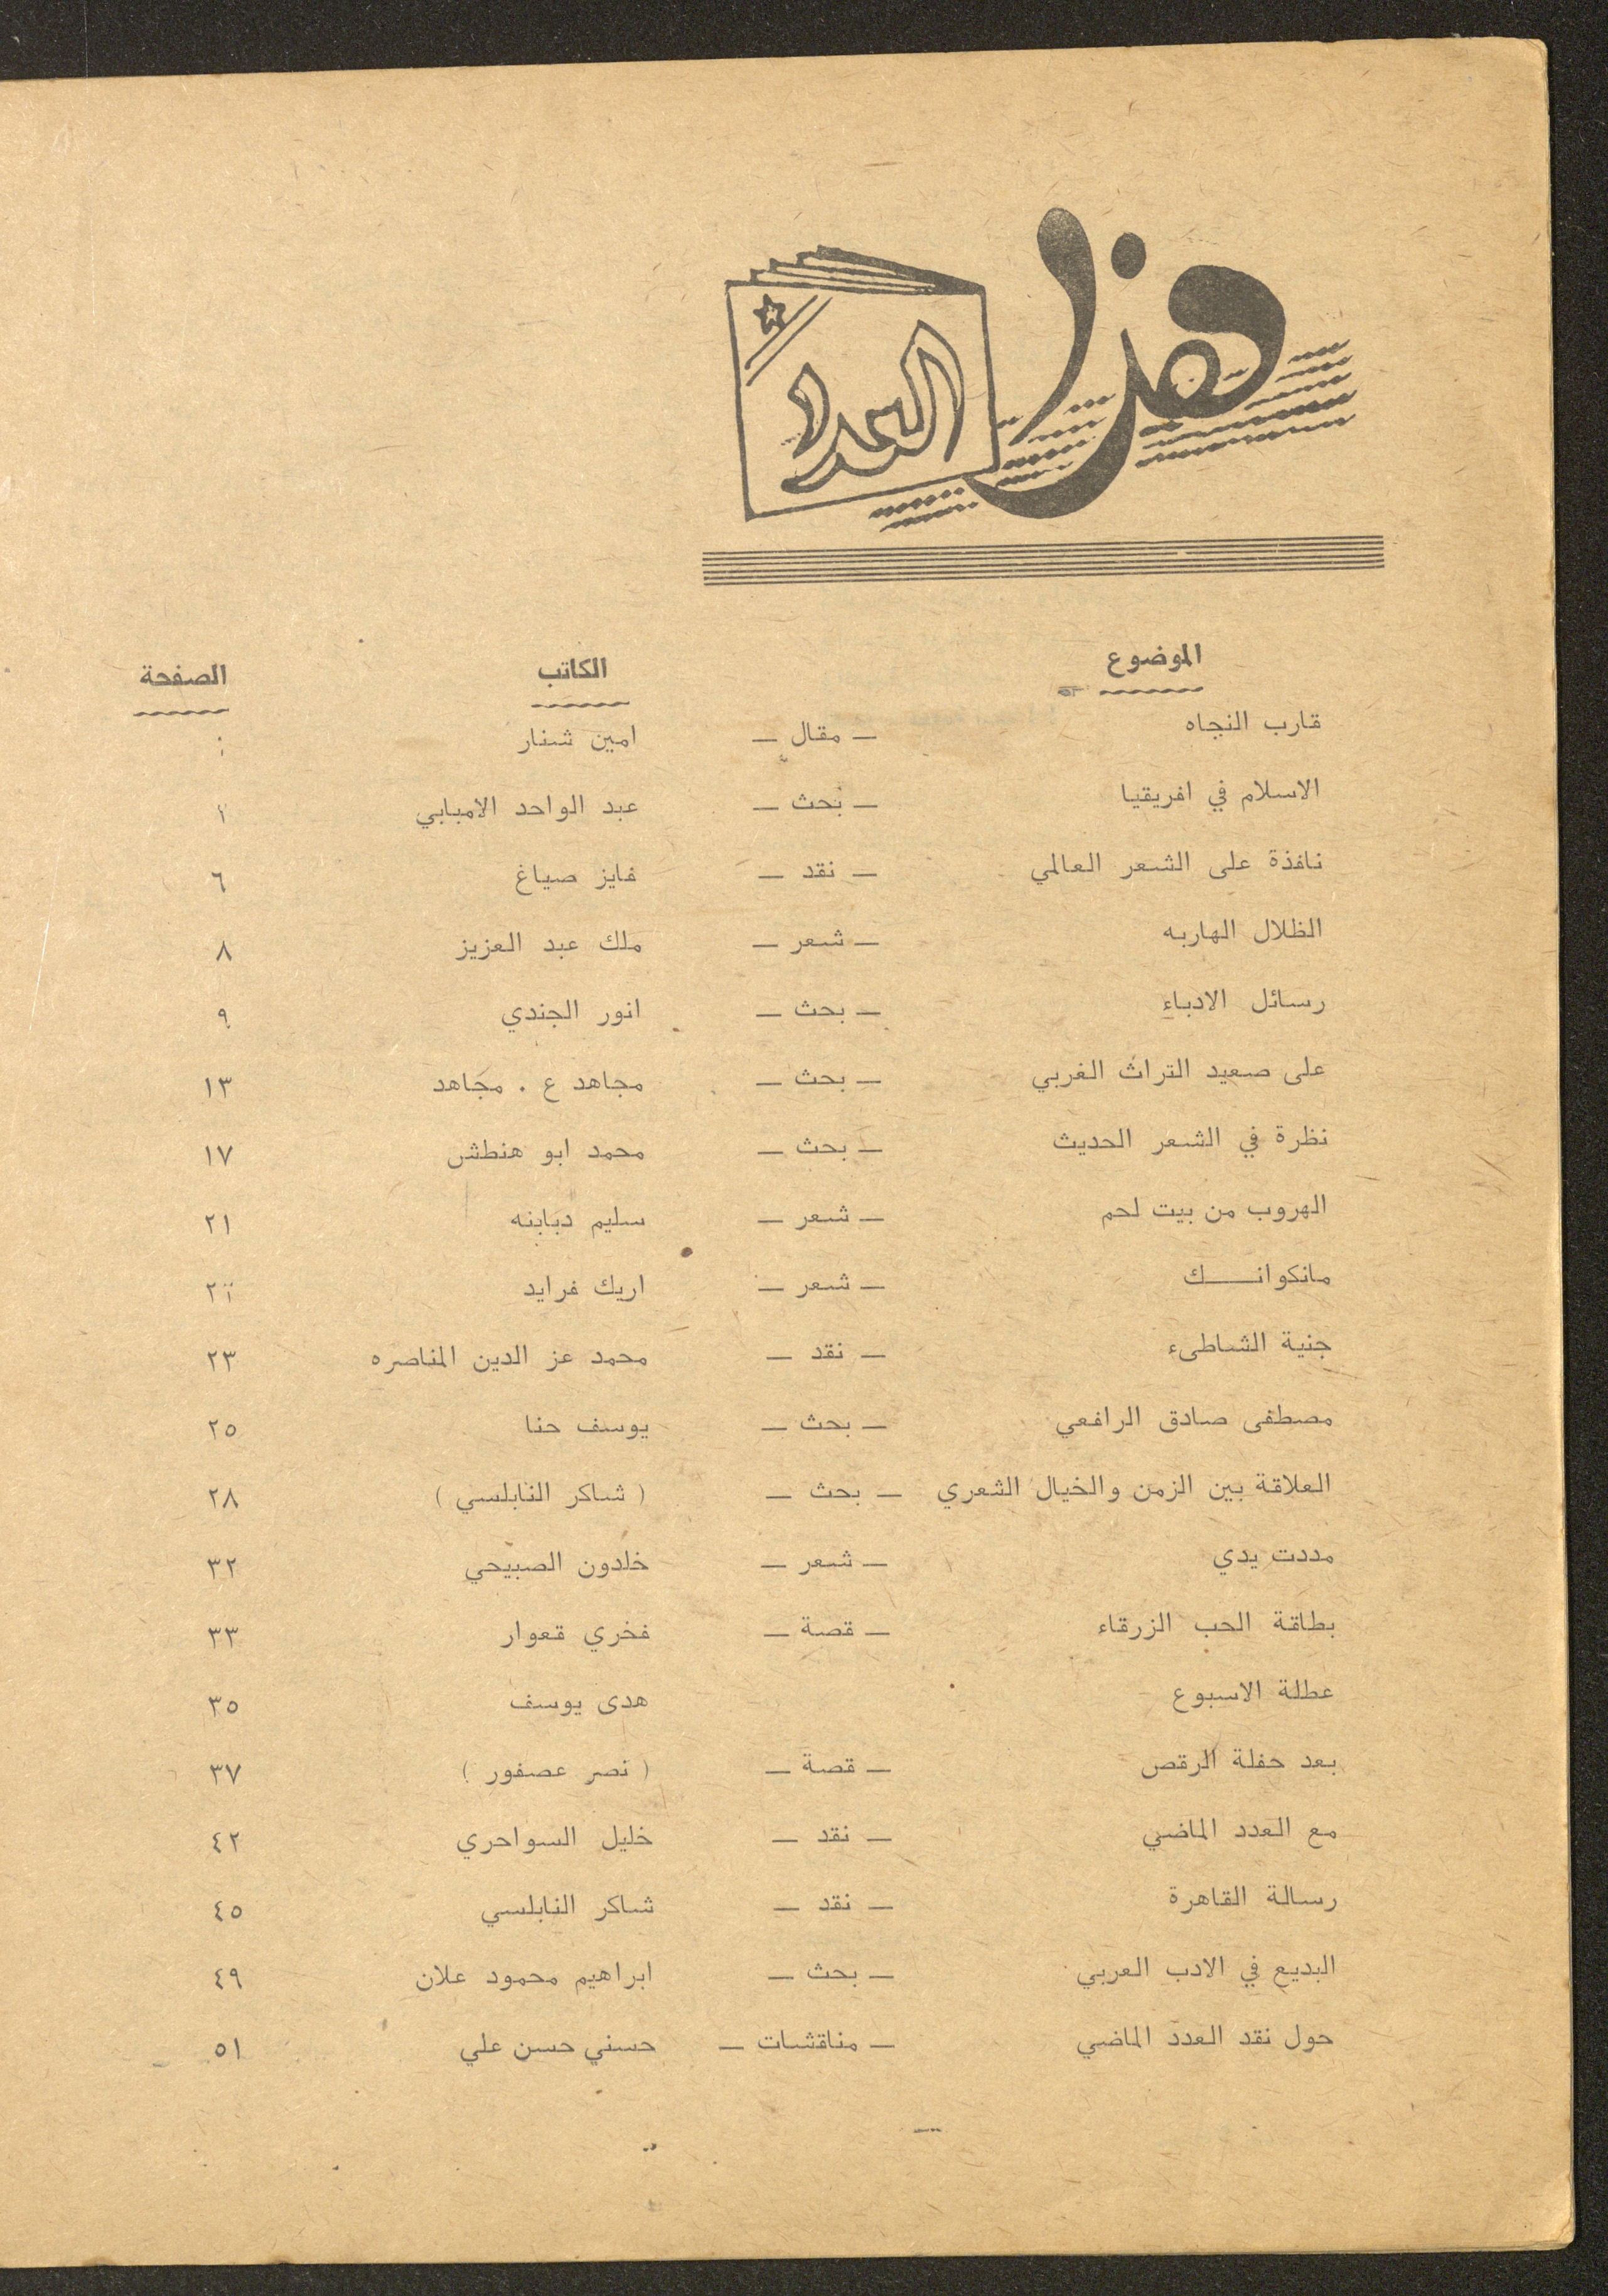 هذا العدد
الموضوع الكاتب الصفحة
قارب النجاه — مقال — امين شنار
الاسلام في افريقيا — بحث — عبد الواحد الامبابي
نافذة على الشعر العالمي — نقد — فايز صياغ ٦
الظلال الهاربه — شعر — ملك عبد العزيز ٨
رسائل الادباء — بحث — انور الجندي ٩
على صعيد التراث الغربي — بحث — مجاهد ع . مجاهد ١٣
نظرة في الشعر الحديث — بحث — محمد ابو هنطش ١٧
الهروب من بيت لحم — شعر — سليم دبابنه ٢١
مانكوانــــك — شعر — اريك فرايد
جنية الشاطىء — نقد — محمد عز الدين المناصره ٢٣
مصطفى صادق الرافعي — بحث — يوسف حنا ٢٥
العلاقة بين الزمن والخيال الشعري — بحث — ( شاكر النابلسي ) ٢٨
مددت يدي — شعر — خلدون الصبيحي ٣٢
بطاقة الحب الزرقاء — قصة — فخري قعوار ٣٣
عطلة الاسبوع هدى يوسف ٣٥
بعد حفلة الرقص — قصة — ( نصر عصفور ) ٣٧
مع العدد الماضي — نقد — خليل السواحري ٤٢
رسالة القاهرة — نقد — شاكر النابلسي ٤٥
البديع في الادب العربي — بحث — ابراهيم محمود علان ٤٩
حول نقد العدد الماضي — مناقشات — حسني حسن علي ٥١